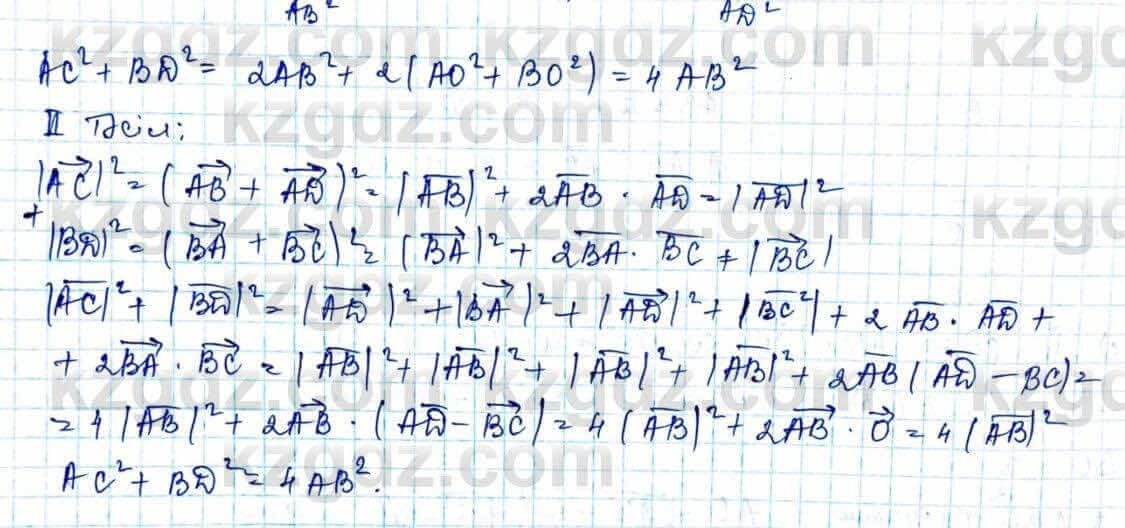 AB² AD²
AC² + BD² = 2AB² + 2(AO² + BO²) = 4AB²
II Тәсіл:
|AC⃗|² = (AB⃗ + AD⃗)² = |AB|² + 2AB · AD = |AD⃗|²
+
|BD|² = (BA⃗ + BC⃗)² = |BA⃗|² + 2BA · BC + |BC⃗|
|AC|² + |BD|² = |AD⃗|² + |BA⃗|² + |AD⃗|² + |BC²| + 2AB · AD +
+ 2BA⃗ · BC⃗ = |AB|² + |AB|² + |AB|² + |AB|² + 2AB(AD⃗ - BC) =
= 4|AB|² + 2AB⃗ · (AD⃗ - BC⃗) = 4(AB)² + 2AB⃗ · O⃗ = 4(AB)²
AC² + BD² = 4AB².
kzgdz.com